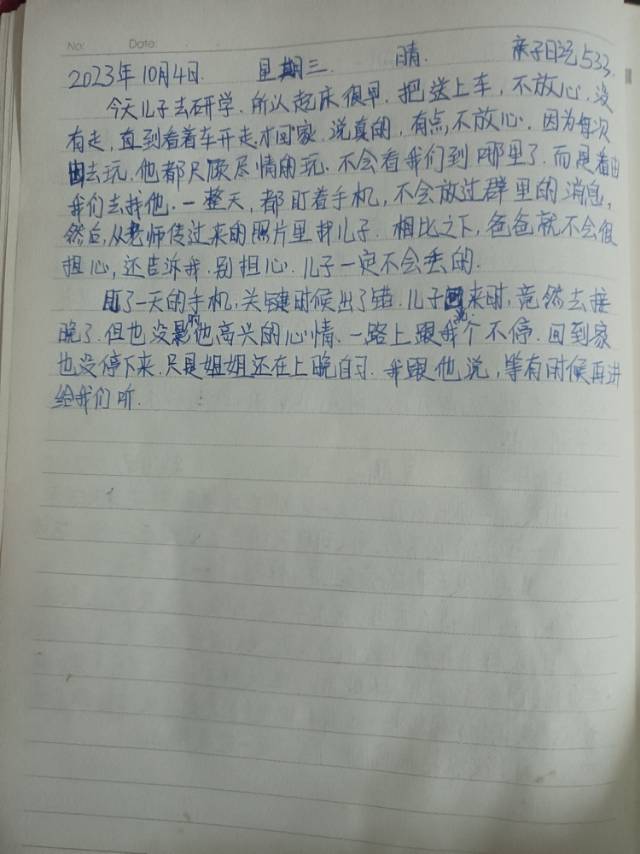 No: Date:
2023年10月4日. 星期三. 晴. 亲子日记533.
今天儿子去研学.所以起床很早.把送上车,不放心.没
有走,直到看着车开走才回家.说真的,有点不放心.因为每次
出去玩.他都只顾尽情的玩.不会看我们到哪里了.而是看由
我们去找他.一整天,都盯着手机,不会放过群里的消息,
然后,从老师传过来的照片里找儿子.相比之下,爸爸就不会很
担心,还告诉我.别担心.儿子一定不会丢的.
了一天的手机.关键时候出了错.儿子回来时,竟然去接
晚了.但也没影他高兴的心情.一路上跟我说个不停.回到家
也没停下来.只是姐姐还在上晚自习.我跟他说,等有时候再讲
给我们听.